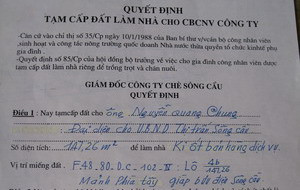 QUYẾT ĐỊNH
TẠM CẤP ĐẤT LÀM NHÀ CHO CBCNV CÔNG TY
-Căn cứ vào chỉ thị số 35/Cp ngày 10/1/1988 của Ban bí thư v/v cán bộ công nhân viên
sinh hoạt và công tác nông trường quốc doanh Nhà nước thừa quyền tổ chức kinh tế phụ
gia đình.
-Quyết định số 85/Cp của hội đồng bộ trưởng về việc cho gia đình công nhân viên được
tạm cấp đất làm nhà riêng để trồng trọt và chăn nuôi.
GIÁM ĐỐC CÔNG TY CHÈ SÔNG CẦU
QUYẾT ĐỊNH
Điều 1 : Nay tạm cấp đất cho ông Nguyễn Quang Chung
Đại diện cho U.B.N.D Thị trấn Sông Cầu
Số diện tích: 14726 m² để làm nhà Ki ốt bán hàng dịch vụ.
Vị trí miếng đất. F48.80.D.C. 102-IV : Lô 4b/14726
Mảnh phía tây giáp bưu điện Sông Cầu